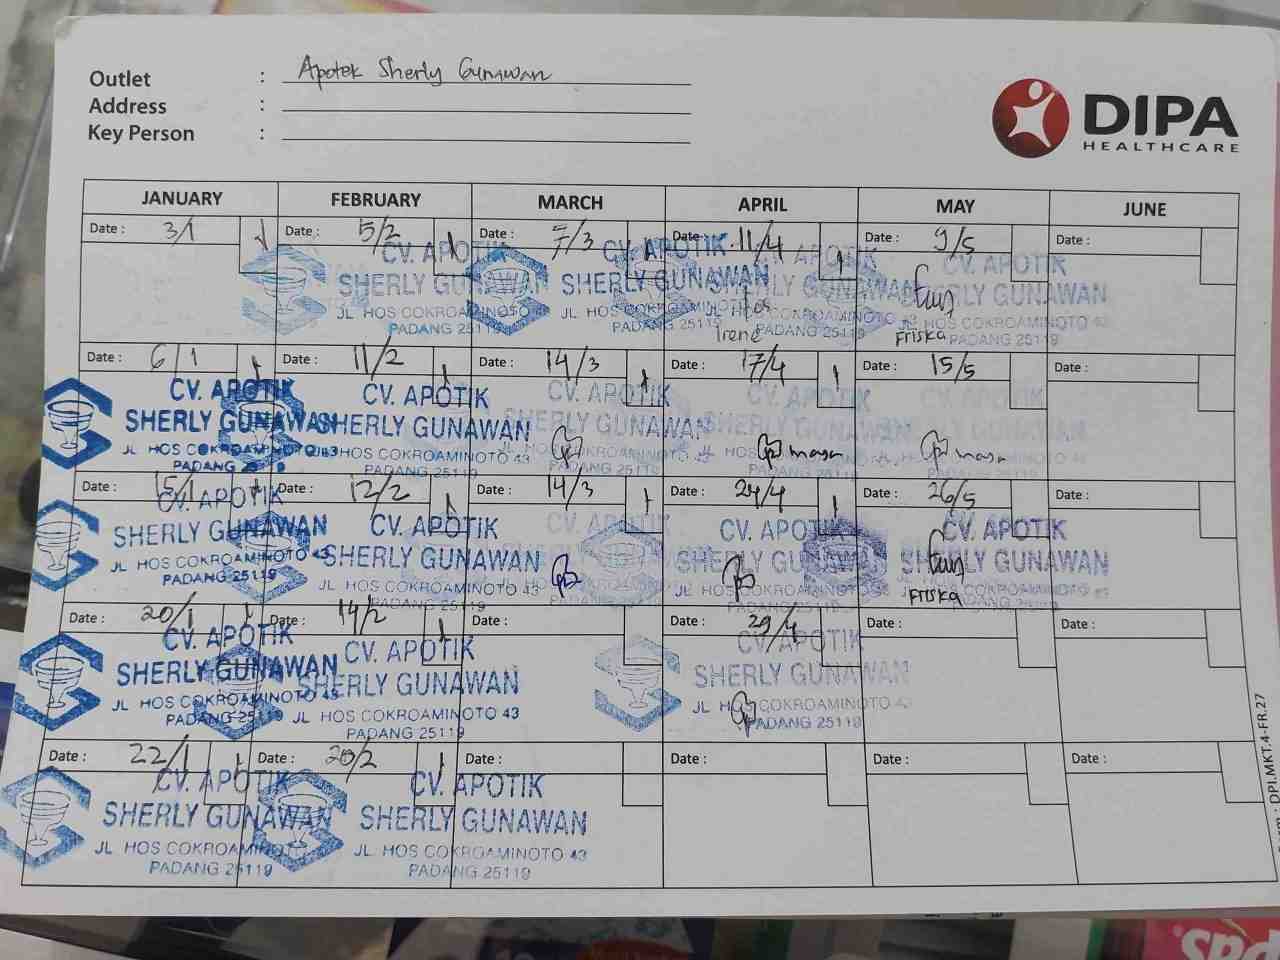 Outlet : Apotek Sherly Gunawan
Address :
Key Person :
DIPA
HEALTHCARE
JANUARY FEBRUARY MARCH APRIL MAY JUNE
Date : 3/1 Date : 5/2 Date : 7/3 Date : 11/4 Date : 9/5 Date :
CV. APOTIK CV. APOTIK CV. APOTIK CV. APOTIK
SHERLY GUNAWAN SHERLY GUNAWAN SHERLY GUNAWAN SHERLY GUNAWAN
JL HOS COKROAMINOTO 43 JL HOS COKROAMINOTO 43 JL HOS COKROAMINOTO 43 JL HOS COKROAMINOTO 43
PADANG 25119 PADANG 25119 Irene PADANG 25119 Friska PADANG 25119
Date : 6/1 Date : 11/2 Date : 14/3 Date : 17/4 Date : 15/5 Date :
CV. APOTIK CV. APOTIK CV. APOTIK CV. APOTIK CV. APOTIK
SHERLY GUNAWAN SHERLY GUNAWAN SHERLY GUNAWAN SHERLY GUNAWAN SHERLY GUNAWAN
JL HOS COKROAMINOTO 43 JL HOS COKROAMINOTO 43 JL HOS COKROAMINOTO 43 JL HOS
PADANG 25119 PADANG 25119
Date : 15/1 Date : 12/2 Date : 14/3 Date : 24/4 Date : 26/5 Date :
CV. APOTIK CV. APOTIK CV. APOTIK CV. APOTIK CV. APOTIK
SHERLY GUNAWAN SHERLY GUNAWAN SHERLY GUNAWAN SHERLY GUNAWAN
JL HOS COKROAMINOTO 43 JL HOS COKROAMINOTO 43 JL HOS COKROAMINOTO 43
PADANG 25119 PADANG 25119 Friska
Date : 20/1 Date : 14/2 Date : Date : 29/4 Date : Date :
CV. APOTIK CV. APOTIK CV. APOTIK
SHERLY GUNAWAN SHERLY GUNAWAN SHERLY GUNAWAN
JL HOS COKROAMINOTO 43 JL HOS COKROAMINOTO 43 JL HOS COKROAMINOTO 43
PADANG 25119 PADANG 25119 PADANG 25119
Date : 22/1 Date : 20/2 Date : Date : Date : Date :
CV. APOTIK CV. APOTIK
SHERLY GUNAWAN SHERLY GUNAWAN
JL HOS COKROAMINOTO 43 JL HOS COKROAMINOTO 43
PADANG 25119 PADANG 25119
DPI.MKT.4-FR.27